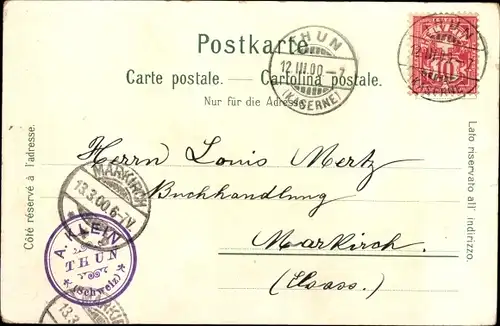 Postkarte.
Carte postale. — Cartolina postale.
Nur für die Adresse.
THUN
12.III.00.–7
(KASERNE)
THUN
12.III.00
KASERNE)
10
Herrn Louis Mertz
Buchhandlung
Markirch.
(Elsass.)
MARKIRCH
13.3.00.6-7V.
A. KLEIN
THUN
(Schweiz)
MARKIRCH
13.3
Côté réservé à l'adresse.
Lato riservato all' indirizzo.